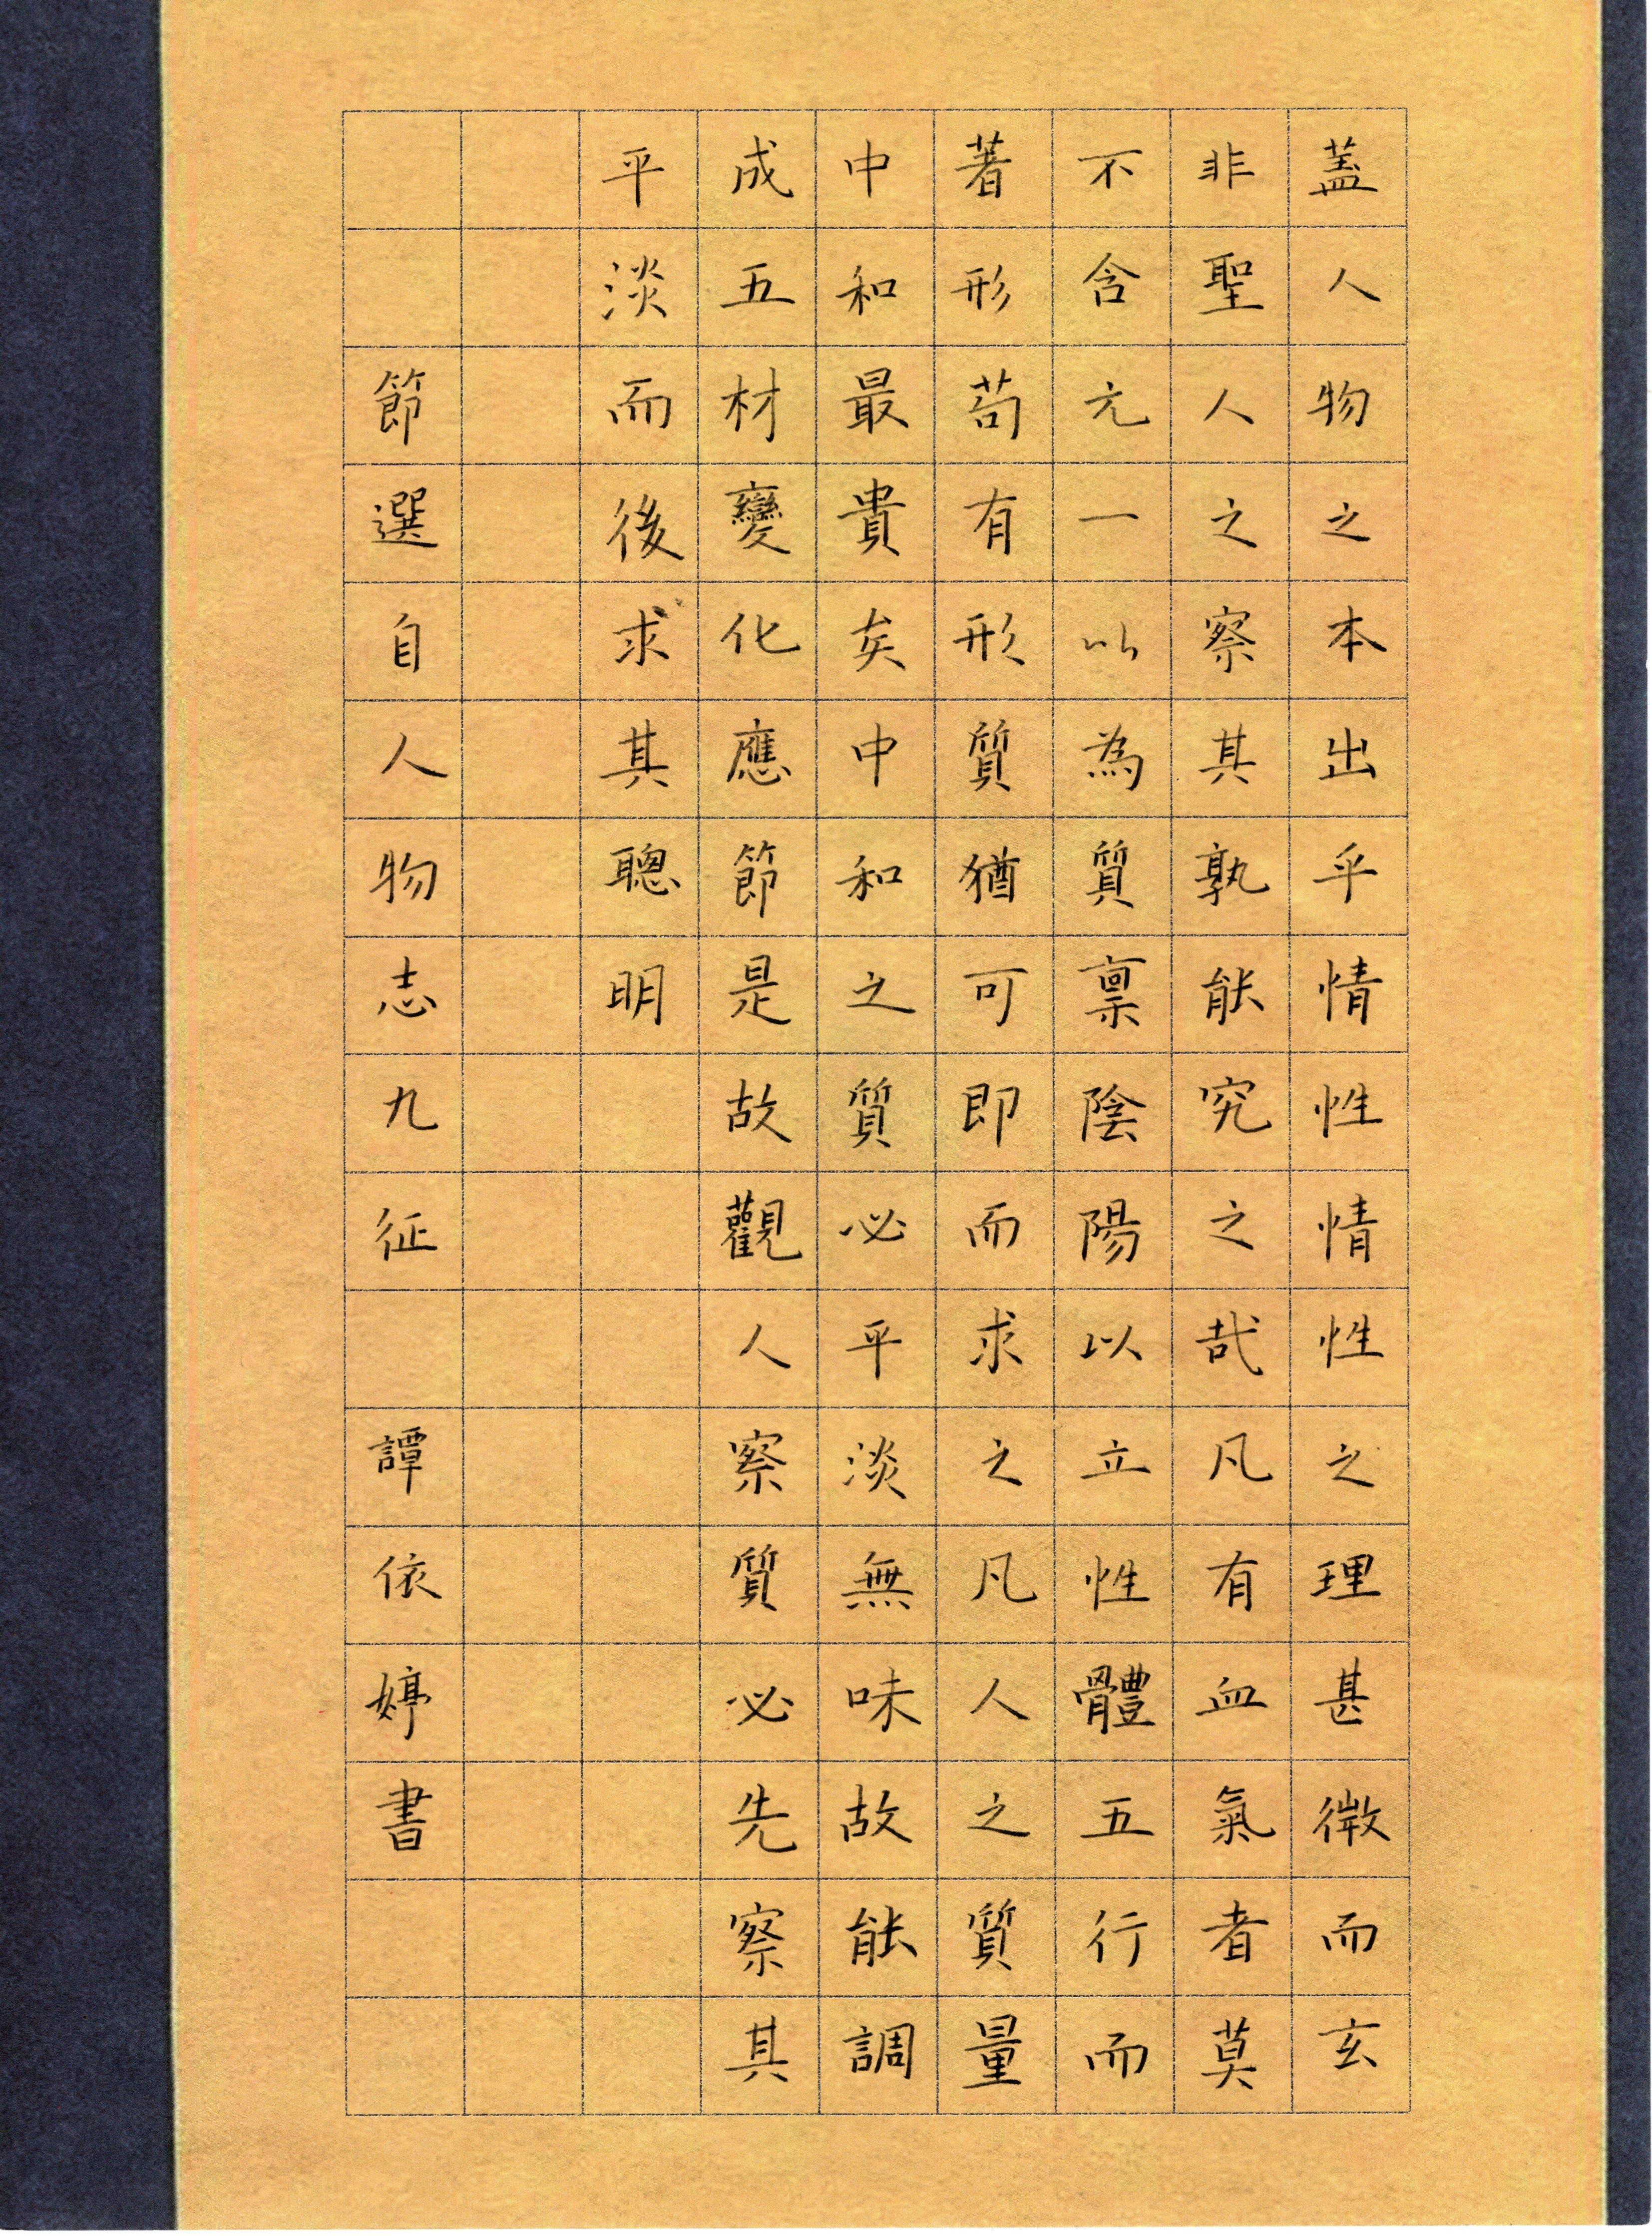 蓋人物之本出乎情性情性之理甚微而玄
非聖人之察其孰能究之哉凡有血氣者莫
不含元一以為質禀陰陽以立性體五行而
著形苟有形質猶可即而求之凡人之質量
中和最貴矣中和之質必平淡無味故能調
成五材變化應節是故觀人察質必先察其
平淡而後求其聰明
節選自人物志九征 譚依婷書